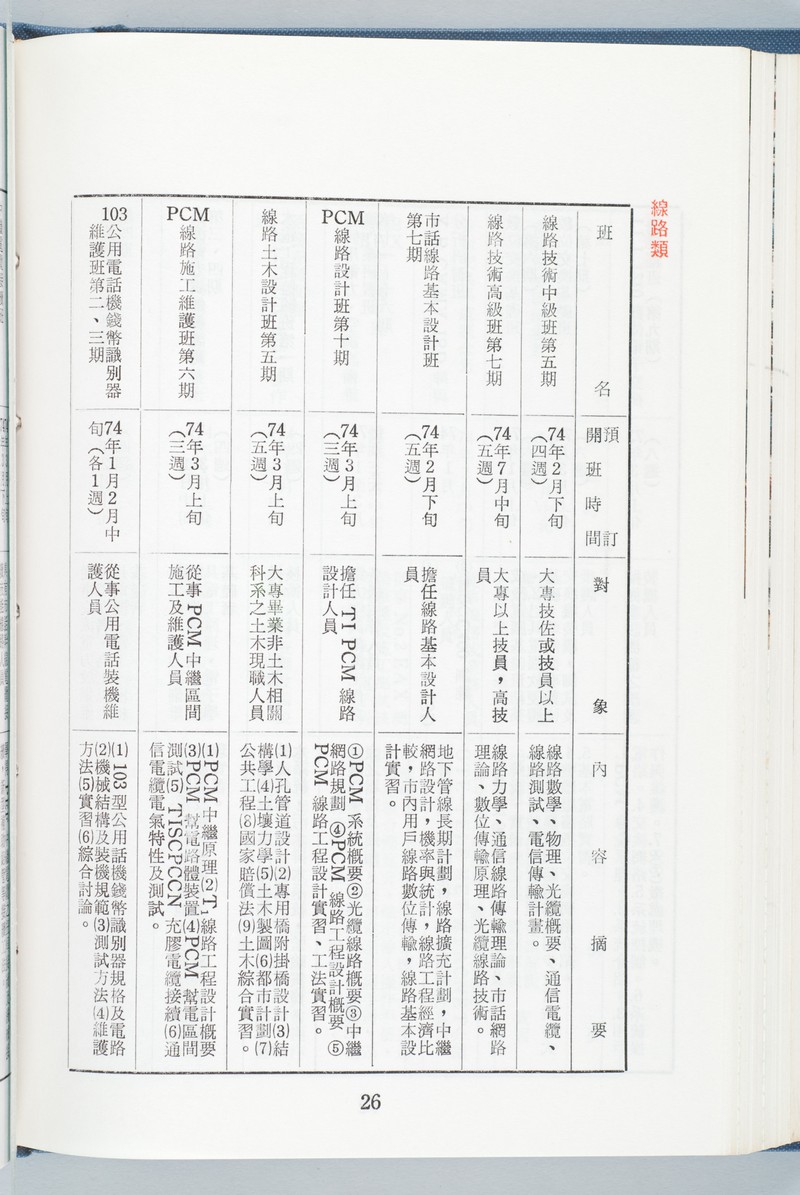 線路類
班名
預訂
開班時間
對象
內容摘要
線路技術中級班第五期
74年2月下旬
（四週）
大專技佐或技員以上
線路數學、物理、光纜概要、通信電纜、
線路測試、電信傳輸計畫。
線路技術高級班第七期
74年7月中旬
（五週）
大專以上技員，高技
員
線路力學、通信線路傳輸理論、市話網路
理論、數位傳輸原理、光纜線路技術。
市話線路基本設計班
第七期
74年2月下旬
（五週）
擔任線路基本設計人
員
地下管線長期計劃，線路擴充計劃，中繼
網路設計，機率與統計，線路工程經濟比
較，市內用戶線路數位傳輸，線路基本設
計實習。
PCM線路設計班第十期
74年3月上旬
（三週）
擔任 T1 PCM 線路
設計人員
①PCM 系統概要②光纜線路概要③中繼
網路規劃 ④PCM 線路工程設計概要 ⑤
PCM 線路工程設計實習、工法實習。
線路土木設計班第五期
74年3月上旬
（五週）
大專畢業非土木相關
科系之土木現職人員
(1)人孔管道設計(2)專用橋附掛橋設計(3)結
構學(4)土壤力學(5)土木製圖(6)都市計劃(7)
公共工程(8)國家賠償法(9)土木綜合實習。
PCM線路施工維護班第六期
74年3月上旬
（三週）
從事 PCM 中繼區間
施工及維護人員
(1)PCM 中繼原理(2)T1線路工程設計概要
(3)PCM 幫電路體裝置(4)PCM 幫電區間
測試(5) TISCPCCN 充膠電纜接續(6)通
信電纜電氣特性及測試。
103公用電話機錢幣識別器
維護班第二、三期
74年1月2月中
旬（各1週）
從事公用電話裝機維
護人員
(1) 103 型公用話機錢幣識別器規格及電路
(2)機械結構及裝機規範(3)測試方法(4)維護
方法(5)實習(6)綜合討論。
26